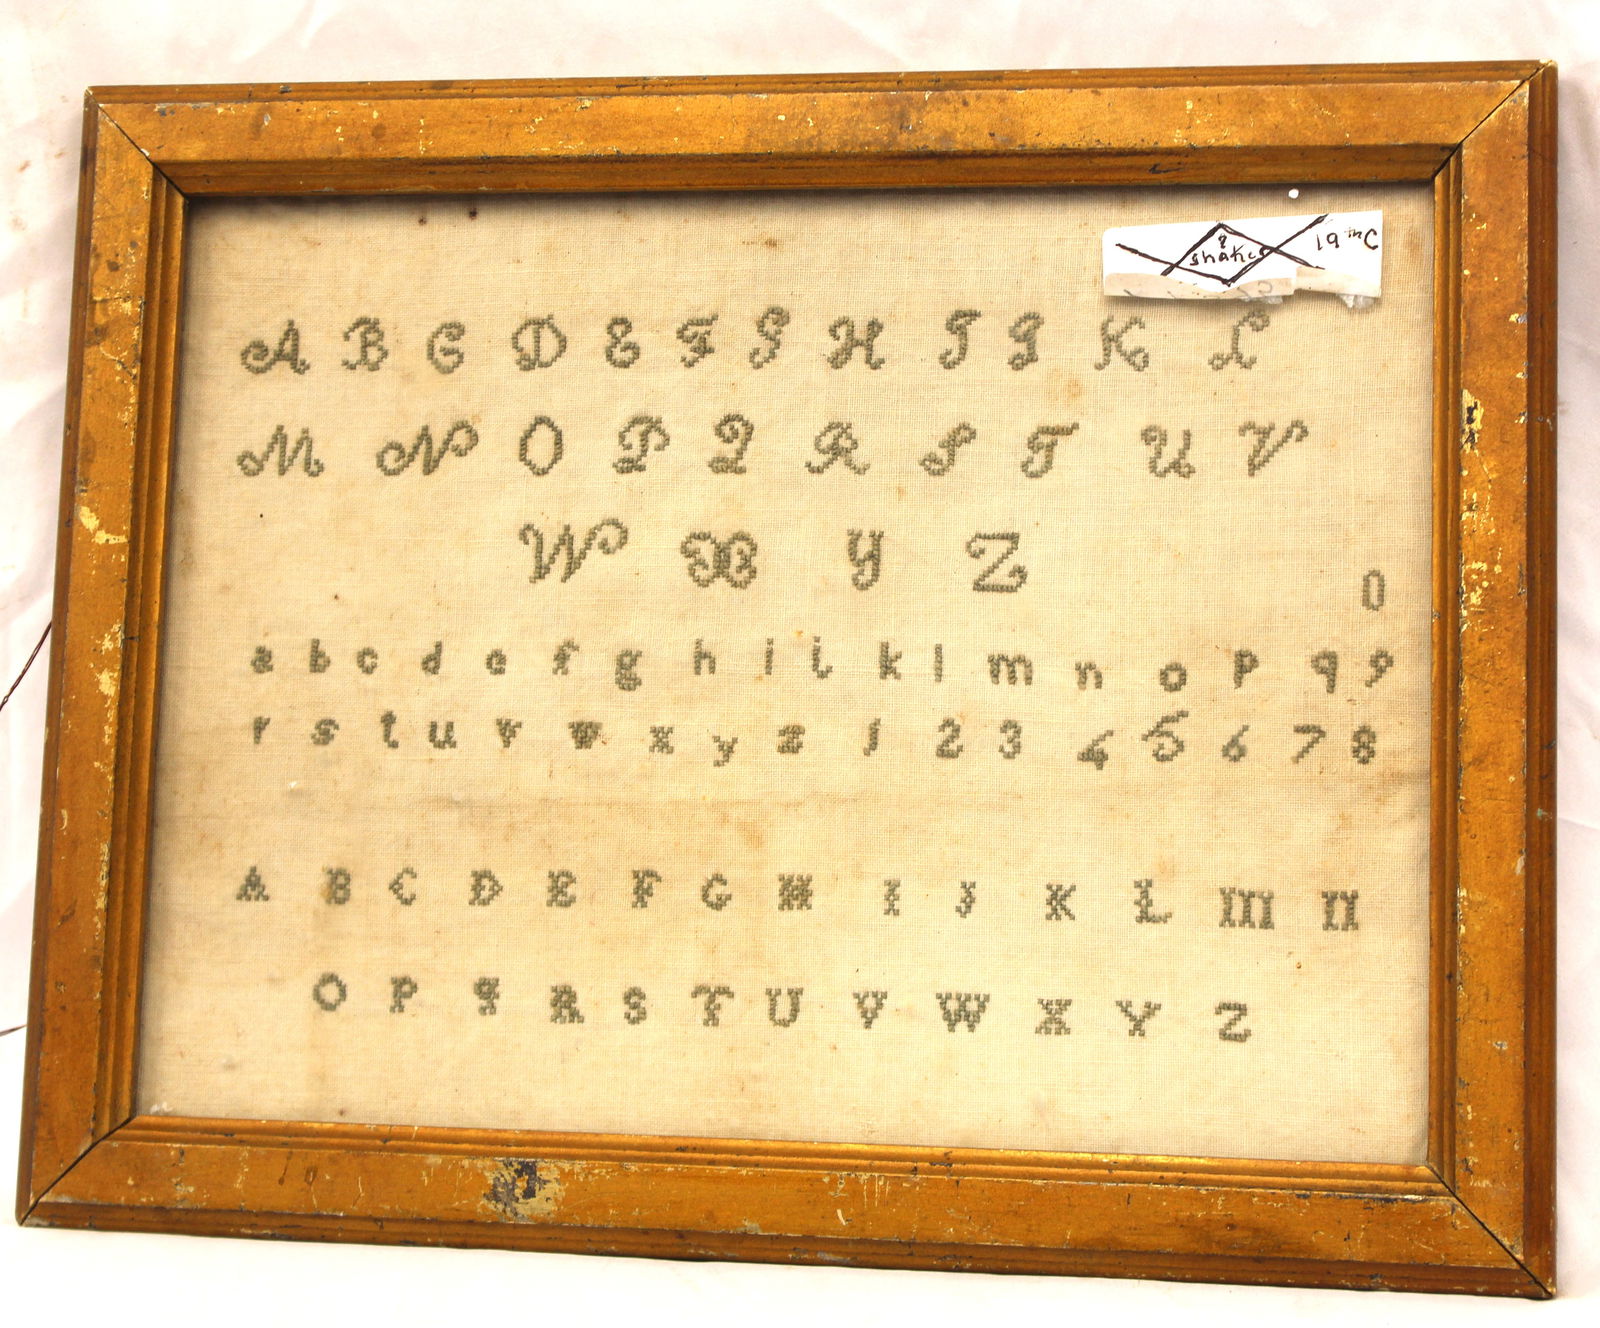 19th C
A B C D E F G H I J K L
M N O P Q R S T U V
W X Y Z
0
a b c d e f g h i j k l m n o p q 9
r s t u v w x y z 1 2 3 4 5 6 7 8
A B C D E F G H I J K L M N
O P Q R S T U V W X Y Z